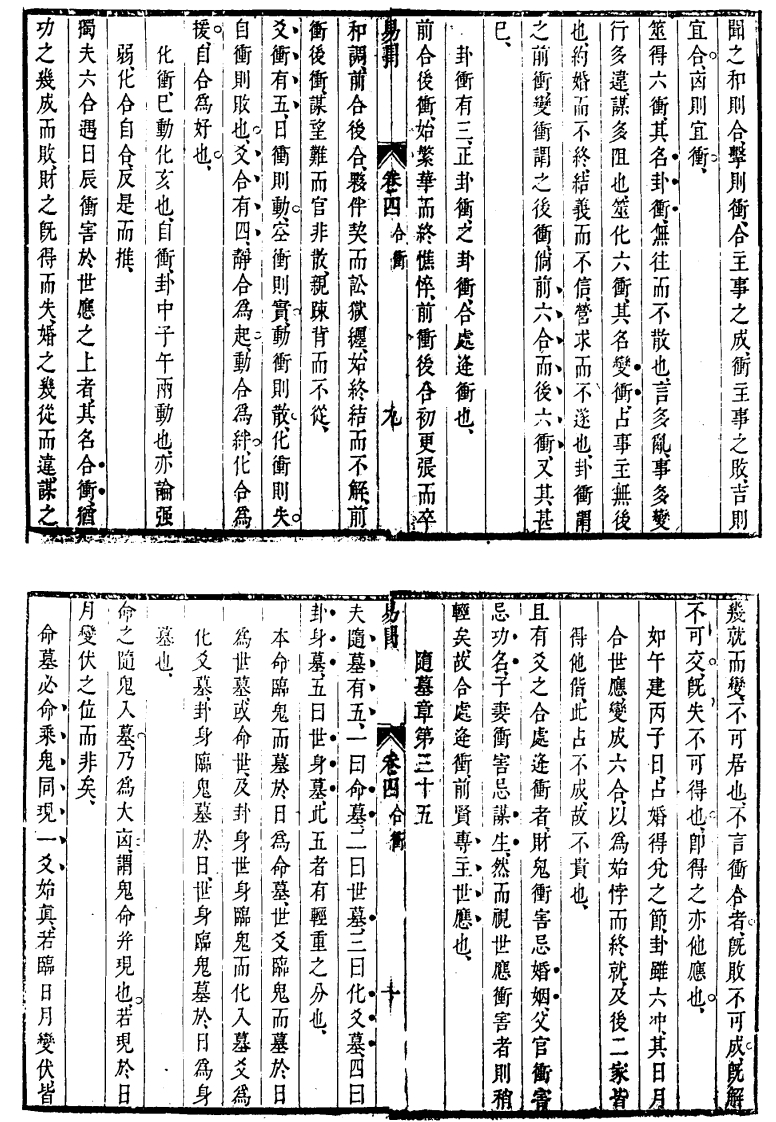 聞之和則合、擊則衝、合主事之成、衝主事之敗、吉則
宜合、凶則宜衝、
筮得六衝、其名卦衝、無往而不散也、言多亂、事多變
行多違謀多阻也、筮化六衝、其名變衝、占事主無後
也、約婚而不終、結義而不信、營求而不遂也、卦衝謂
之前衝、變衝謂之後衝、倘前六合而後六衝、又其甚
巳、
卦衝有三、正卦衝、之卦衝、合處逢衝也、
前合後衝、始繁華而終憔悴、前衝後合、初更張而卒
易冐 卷四 合衝 九
和調、前合後合、夥伴契而訟獄纏、始終結而不解、前
衝後衝、謀望難而官非散、親踈背而不從、
爻衝有五、日衝則動、空衝則實、動衝則散、化衝則失
自衝則敗也、爻合有四、靜合為起、動合為絆、化合為
援、自合為好也、
化衝、巳動化亥也、自衝、卦中子午兩動也、亦論强
弱、化合自合、反是而推、
獨夫六合遇日辰衝害於世應之上者、其名合衝、猶
功之幾成而敗、財之旣得而失、婚之幾從而違、謀之
幾就而變、不可居也、不言衝合者、旣敗不可成、旣解
不可交、旣失不可得也、卽得之亦他應也、
如午建丙子日、占婚得兊之節、卦雖六冲、其日月
合世應變成六合、以為始悖而終就、及後二家皆
得他偕、此占不成、故不貴也、
且有爻之合處逢衝者、財鬼衝害忌婚姻、父官衝害
忌功名、子妻衝害忌謀生、然而視世應衝害者則稍
輕矣、故合處逢衝前賢專主世應也、
隨墓章第三十五
易冐 卷四 合衝 十
夫隨墓有五、一曰命墓、二曰世墓、三曰化爻墓、四曰
卦身墓、五曰世身墓、此五者有輕重之分也、
本命臨鬼而墓於日為命墓、世爻臨鬼而墓於日
為世墓、或命世及卦身世身臨鬼而化入墓爻為
化爻墓、卦身臨鬼墓於日、世身臨鬼墓於日為身
墓也、
命之隨鬼入墓、乃為大凶、謂鬼命幷現也、若現於日
月變伏之位而非矣、
命墓必命乘鬼同現一爻始眞、若臨日月變伏皆